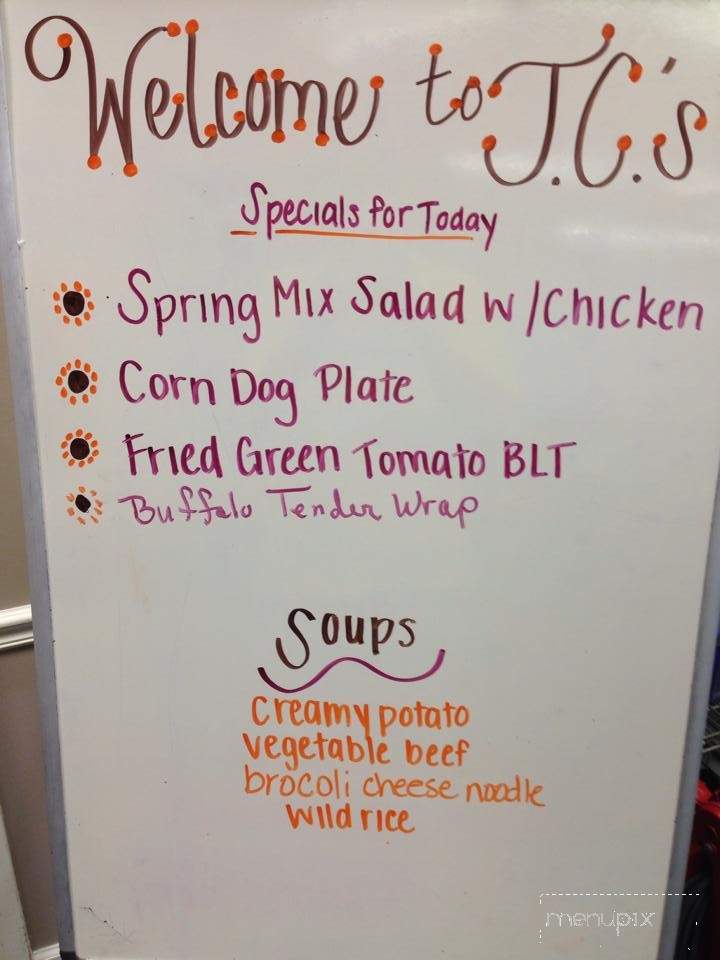 Welcome to J.C.'s
Specials for Today
Spring Mix Salad w/Chicken
Corn Dog Plate
Fried Green Tomato BLT
Buffalo Tender Wrap
Soups
Creamy potato
vegetable beef
brocoli cheese noodle
wild rice
menupix